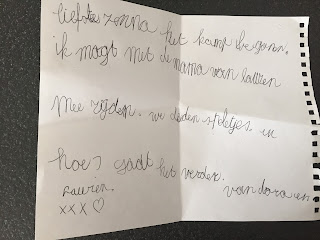 liefste zonna het kamp begonn.
ik moogt met de mama van laurien
mee rijden. we deden spletjes. en
hoe? gaat het verder.
van dora en
Laurien.
xxx♡